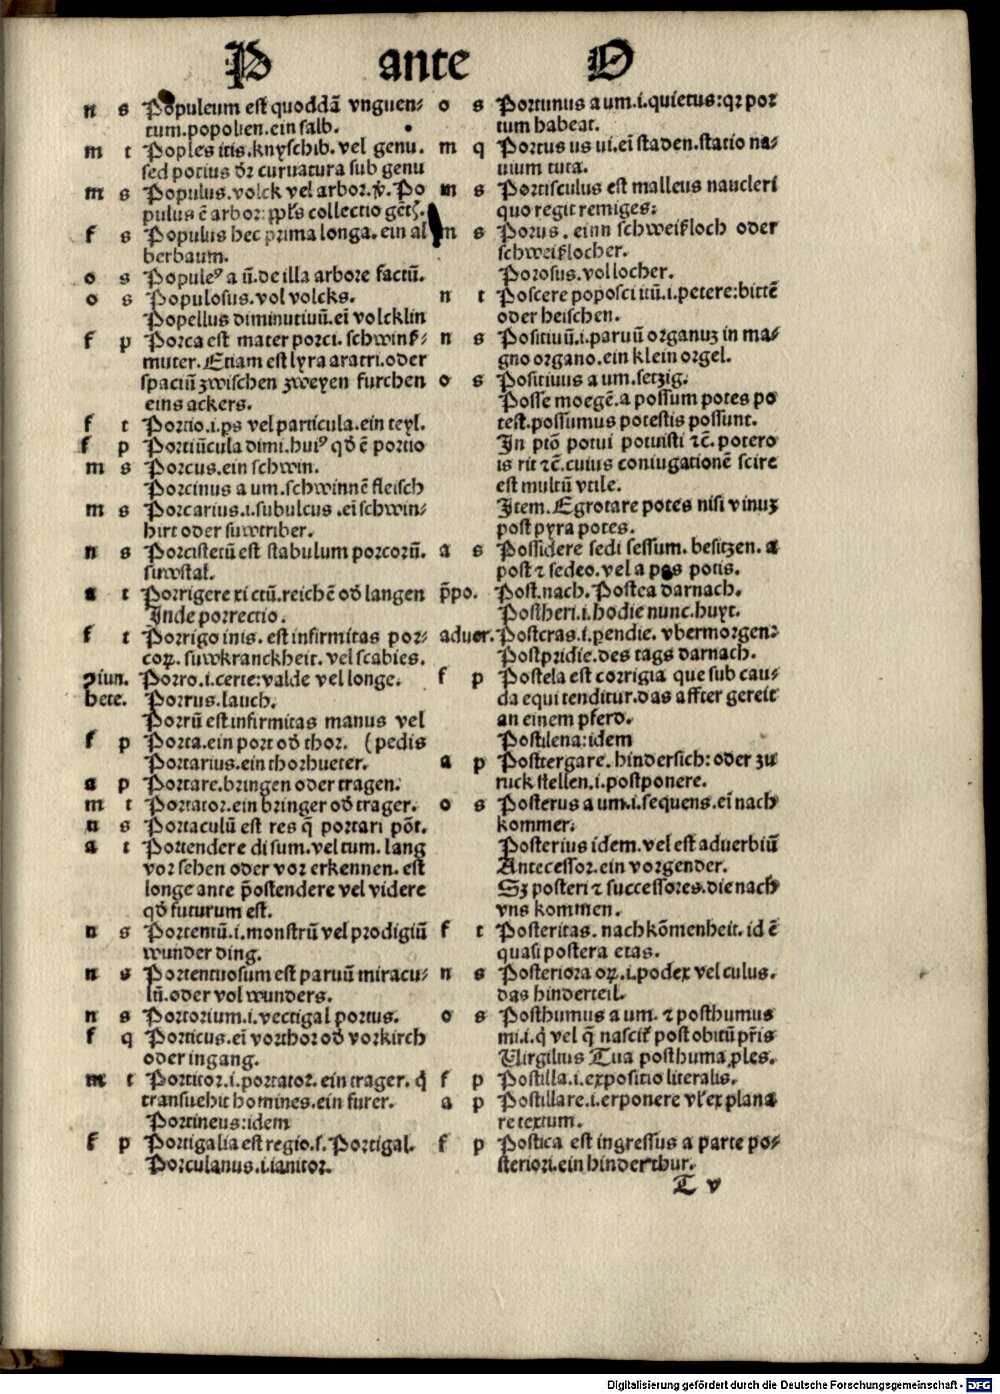 P ante O
n s Populeum est quoddã vnguen-
tum.popolien.ein salb.
m t Poples itis.knyschib.vel genu.
sed potius dr curuatura sub genu
m s Populus.volck vel arbor. Po
pulus ē arbor: ppls collectio
f s Populus hec prima longa.ein al
berbaum.
o s Populeꝰ a ū.de illa arbore factū.
o s Populosus.vol volcks.
Popellus diminutiuū.eī volcklin
f p Porca est mater porci. schwinß-
muter.Etiam est lyra aratri.oder
spaciū zwischen zweyen furchen
eins ackers.
f t Portio.i.ps vel particula.ein teyl.
f p Portiūcula dimi.huiꝰ qđ ē portio
m s Porcus.ein schwin.
Porcinus a um.schwinnē fleisch
m s Porcarius.i.subulcus.eī schwin-
hirt oder suwtriber.
n s Porcistetū est stabulum porcorū.
suwstal.
a t Porrigere xi ctū.reichē oď langen
Inde porrectio.
f t Porrigo inis. est infirmitas por-
coꝝ. suwkranckheit. vel scabies.
ꝯiun. Porro.i.certe:valde vel longe.
bete. Porrus.lauch.
Porrū est infirmitas manus vel
f p Porta.ein port oď thor. (pedis
Portarius.ein thorhueter.
a p Portare.bringen oder tragen.
m t Portator.ein bringer oď trager.
n s Portaculū est res q̄ portari põt.
a t Portendere di sum.vel tum. lang
vor sehen oder vor erkennen. est
longe ante p̄ostendere vel videre
qđ futurum est.
n s Portentū.i.monstrū vel prodigiū
wunder ding.
n s Portentuosum est paruū miracu-
lū.oder vol wunders.
n s Portorium.i.vectigal portus.
f q Porticus.eī vorthor oď vorkirch
oder ingang.
m t Portitor.i.portator.ein trager. q̇
transuehit homines.ein furer.
Portineus:idem
f p Portigalia est regio.s.Portigal.
Porculanus.i.ianitor.
o s Portunus a um.i.quietus:qꝛ por
tum habeat.
m q Portus us ui.eī staden.statio na-
uium tuta.
m s Portisculus est malleus naucleri
quo regit remiges:
m s Porus. einn schweißloch oder
schweißlocher.
Porosus.vol locher.
n t Poscere poposci itū.i.petere:bittē
oder heischen.
n s Positiuū.i.paruū organuꝫ in ma-
gno organo.ein klein orgel.
o s Positiuus a um.setzig.
Posse moegē.a possum potes po
test.possumus potestis possunt.
In ptõ potui potuisti ⁊c̄. potero
is rit ⁊c̄.cuius coniugationē scire
est multū vtile.
Item.Egrotare potes nisi vinuꝫ
post pyra potes.
a s Possidere sedi sessum. besitzen. a
post ⁊ sedeo.vel a pos potis.
p̄po. Post.nach. Postea darnach.
Postheri.i.hodie nunc.huyt.
aduer. Postcras.i.ꝑendie. vbermorgen:
Postpridie.des tags darnach.
f p Postela est corrigia que sub cau-
da equi tenditur.das affter gereit
an einem pferd.
Postilena:idem
a p Posttergare. hindersich: oder zu
ruck stellen.i.postponere.
o s Posterus a um.i.sequens.eī nach
kommer.
Posterius idem.vel est aduerbiū
Antecessor.ein vorgender.
Sꝫ posteri ⁊ successores.die nach
vns kommen.
f t Posteritas. nachkõmenheit. id ē
quasi postera etas.
n s Posteriora oꝝ.i.podex vel culus.
das hinderteil.
o s Posthumus a um. ⁊ posthumus
mi.i.q̇ vel q̄ nascit̃ post obitū pr̄is
Virgilius Tua posthuma ꝓles.
f p Postilla.i.expositio literalis.
a p Postillare.i.exponere vl̓ ex plana
re textum.
f p Postica est ingressus a parte po-
steriori.ein hinder thur.
T v
Digitalisierung gefördert durch die Deutsche Forschungsgemeinschaft - DFG